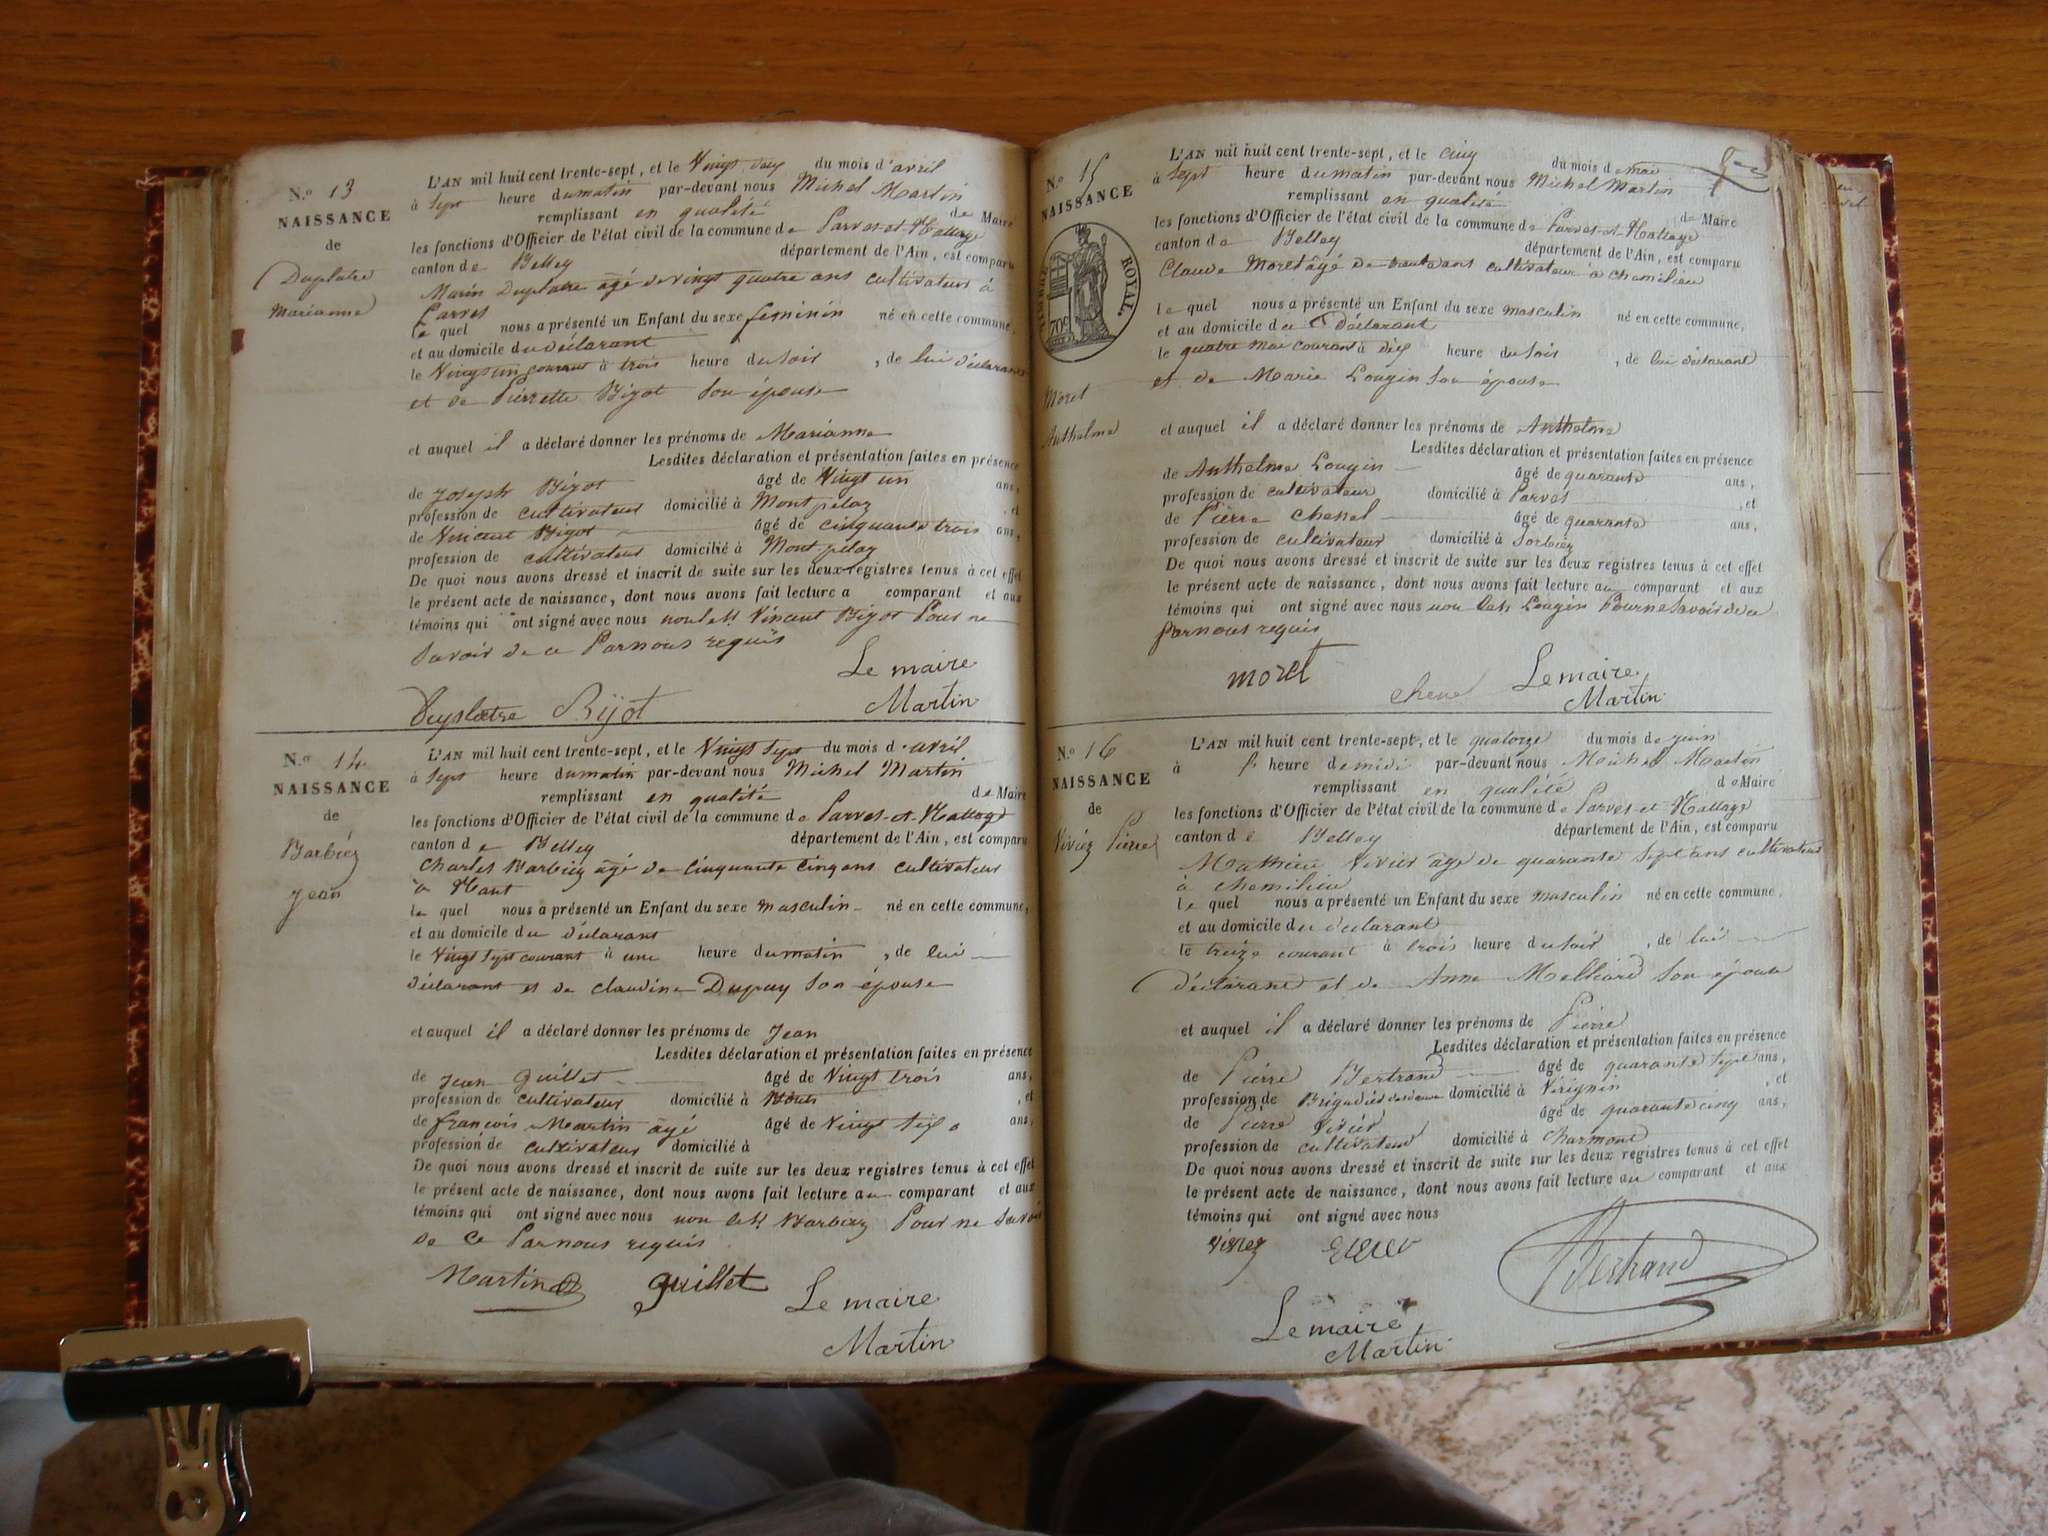 N.o 13
NAISSANCE
de
Duplatre
Marianne
L'AN mil huit cent trente-sept, et le Vingt deux du mois d'avril
à Sept heure du matin par-devant nous Michel Martin
remplissant en qualité de Maire
les fonctions d'Officier de l'état civil de la commune de Parves-et-Nattage
canton de Belley département de l'Ain, est comparu
Marin Duplatre âgé de vingt quatre ans cultivateur à
Parves
le quel nous a présenté un Enfant du sexe feminin né en cette commune,
et au domicile du déclarant
le Vingt un courant à trois heure du soir, de lui déclarant
et de Pierrette Bigot son épouse
et auquel il a déclaré donner les prénoms de Marianne
Lesdites déclaration et présentation faites en présence
de Joseph Bigot âgé de Vingt un ans,
profession de cultivateur domicilié à Montpelaz, et
de Vincent Bigot âgé de cinquante trois ans,
profession de cultivateur domicilié à Montpelaz
De quoi nous avons dressé et inscrit de suite sur les deux registres tenus à cet effet
le présent acte de naissance, dont nous avons fait lecture a comparant et aux
témoins qui ont signé avec nous Vincent Bigot Pour ne
Savoir de ce Par nous requis
Le maire
Duplatre Bijot Martin
N.o 14
NAISSANCE
de
Barbiez
Jean
L'AN mil huit cent trente-sept, et le Vingt Sept du mois d'avril
à Sept heure du matin par-devant nous Michel Martin
remplissant en qualité de Maire
les fonctions d'Officier de l'état civil de la commune de Parves-et-Nattage
canton de Belley département de l'Ain, est comparu
Charles Barbiez âgé de Cinquante Cinq ans cultivateur
à Nant
le quel nous a présenté un Enfant du sexe masculin né en cette commune,
et au domicile du déclarant
le Vingt Sept courant à une heure du matin, de lui
déclarant et de claudine Dupuy son épouse
et auquel il a déclaré donner les prénoms de Jean
Lesdites déclaration et présentation faites en présence
de Jean Guillet âgé de Vingt trois ans,
profession de cultivateur domicilié à, et
de françois Martin âgé âgé de Vingt six ans,
profession de cultivateur domicilié à
De quoi nous avons dressé et inscrit de suite sur les deux registres tenus à cet effet
le présent acte de naissance, dont nous avons fait lecture au comparant et aux
témoins qui ont signé avec nous non Barbiez Pour ne Savoir
de Ce Par nous requis
Martin guillet Le maire
Martin
N.o 15
NAISSANCE
TIMBRE ROYAL.
70c
Moret
Anthelme
L'AN mil huit cent trente-sept, et le cinq du mois de mai
à Sept heure du matin par-devant nous Michel Martin
remplissant en qualité de Maire
les fonctions d'Officier de l'état civil de la commune de Parves-et-Nattage
canton de Belley département de l'Ain, est comparu
Claude Moret âgé de trente ans cultivateur à chemilieu
le quel nous a présenté un Enfant du sexe masculin né en cette commune,
et au domicile du Déclarant
le quatre mai courant à dix heure du soir, de lui déclarant
et de Marie Lougin son épouse
et auquel il a déclaré donner les prénoms de Anthelme
Lesdites déclaration et présentation faites en présence
de Anthelme Lougin âgé de quarante ans,
profession de cultivateur domicilié à Parves, et
de Pierre Chenel âgé de quarante ans,
profession de cultivateur domicilié à Sorbiez
De quoi nous avons dressé et inscrit de suite sur les deux registres tenus à cet effet
le présent acte de naissance, dont nous avons fait lecture au comparant et aux
témoins qui ont signé avec nous non Lougin Pour ne Savoir de ce
Par nous requis
moret Le maire
Martin
N.o 16
NAISSANCE
de
Viviez Pierre
L'AN mil huit cent trente-sept, et le quatorze du mois de juin
à heure de midi par-devant nous Michel Martin
remplissant en qualité de Maire
les fonctions d'Officier de l'état civil de la commune de Parves-et-Nattage
canton de Belley département de l'Ain, est comparu
Mathieu Vivier âgé de quarante Sept ans cultivateur
à chemilieu
le quel nous a présenté un Enfant du sexe masculin né en cette commune,
et au domicile du déclarant
le treize courant à trois heure du soir, de lui
déclarant et de Anne Melliard son épouse
et auquel il a déclaré donner les prénoms de Pierre
Lesdites déclaration et présentation faites en présence
de Pierre Bertrand âgé de quarante Sept ans,
profession de Brigadier domicilié à Virignin, et
de Pierre Vivier âgé de quarante cinq ans,
profession de cultivateur domicilié à charmont
De quoi nous avons dressé et inscrit de suite sur les deux registres tenus à cet effet
le présent acte de naissance, dont nous avons fait lecture au comparant et aux
témoins qui ont signé avec nous
Bertrand
Le maire
Martin